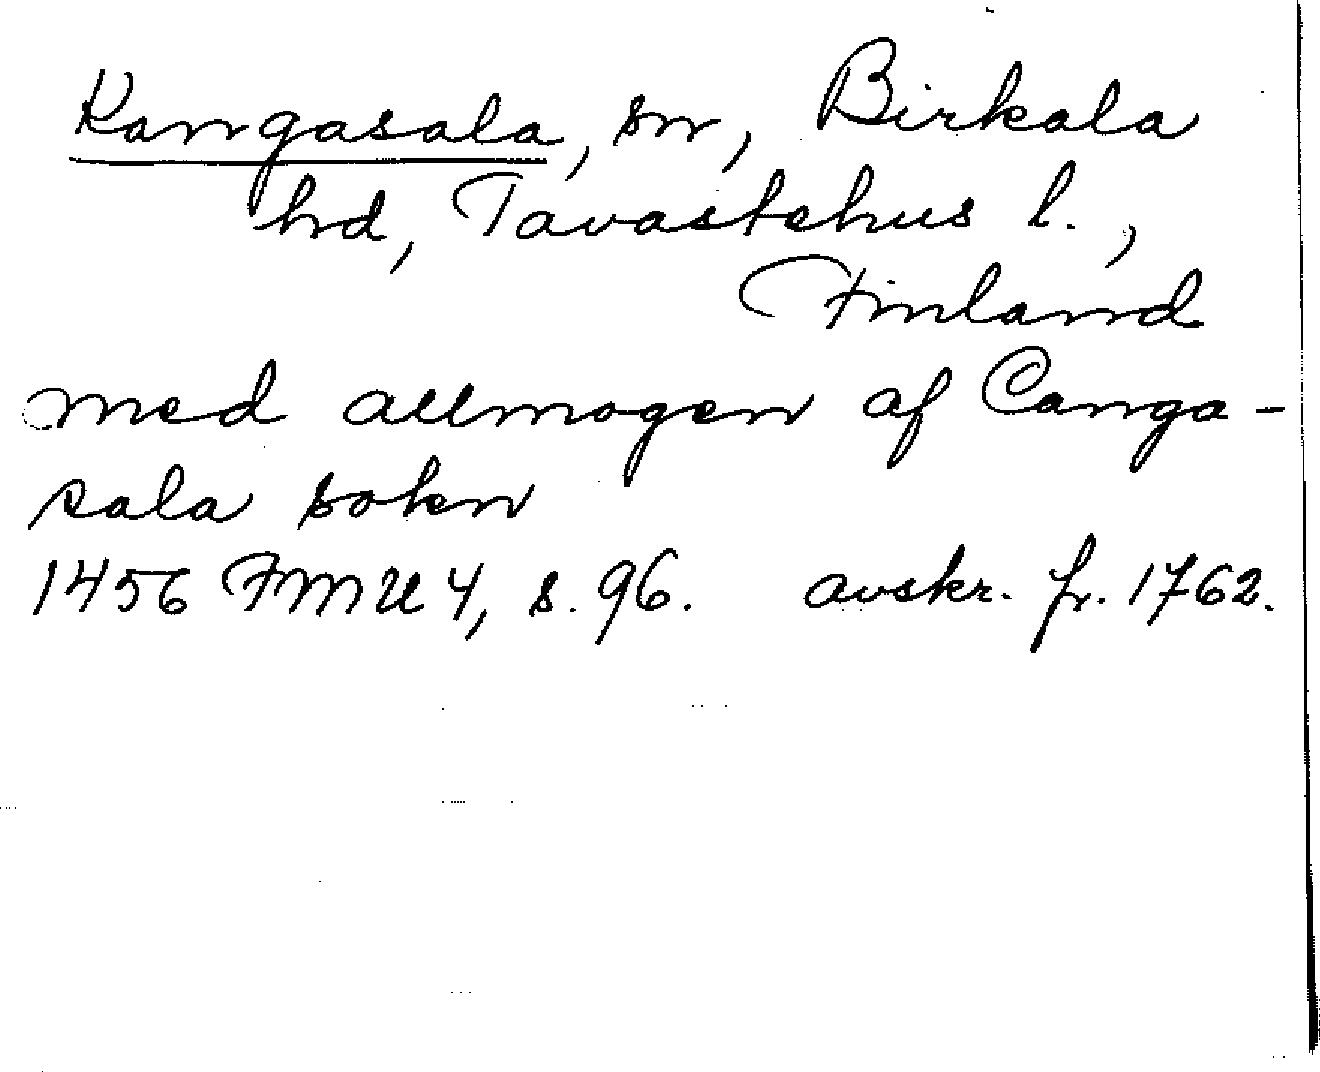 Kangasala, sn, Birkala
hd, Tavastehus l.,
Finland
med allmogen af Canga-
sala sokn
1456 FMU 4, s. 96. avskr. fr. 1762.